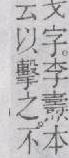 文字。李燾本
云以擊之不